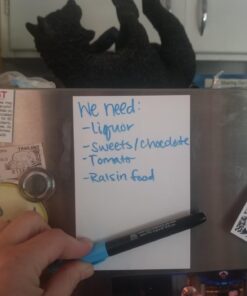 We need:
- Liquor
- Sweets/Chocolate
- Tomato
- Raisin food